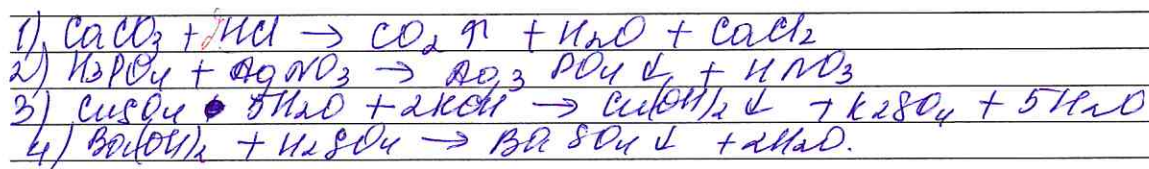 1) CaCO3 + 2HCl → CO2 ↑ + H2O + CaCl2
2) H3PO4 + AgNO3 → Ag3 PO4 ↓ + HNO3
3) CuSO4 • 5H2O + 2KOH → Cu(OH)2 ↓ + K2SO4 + 5H2O
4) Ba(OH)2 + H2SO4 → BaSO4 ↓ + 2H2O.